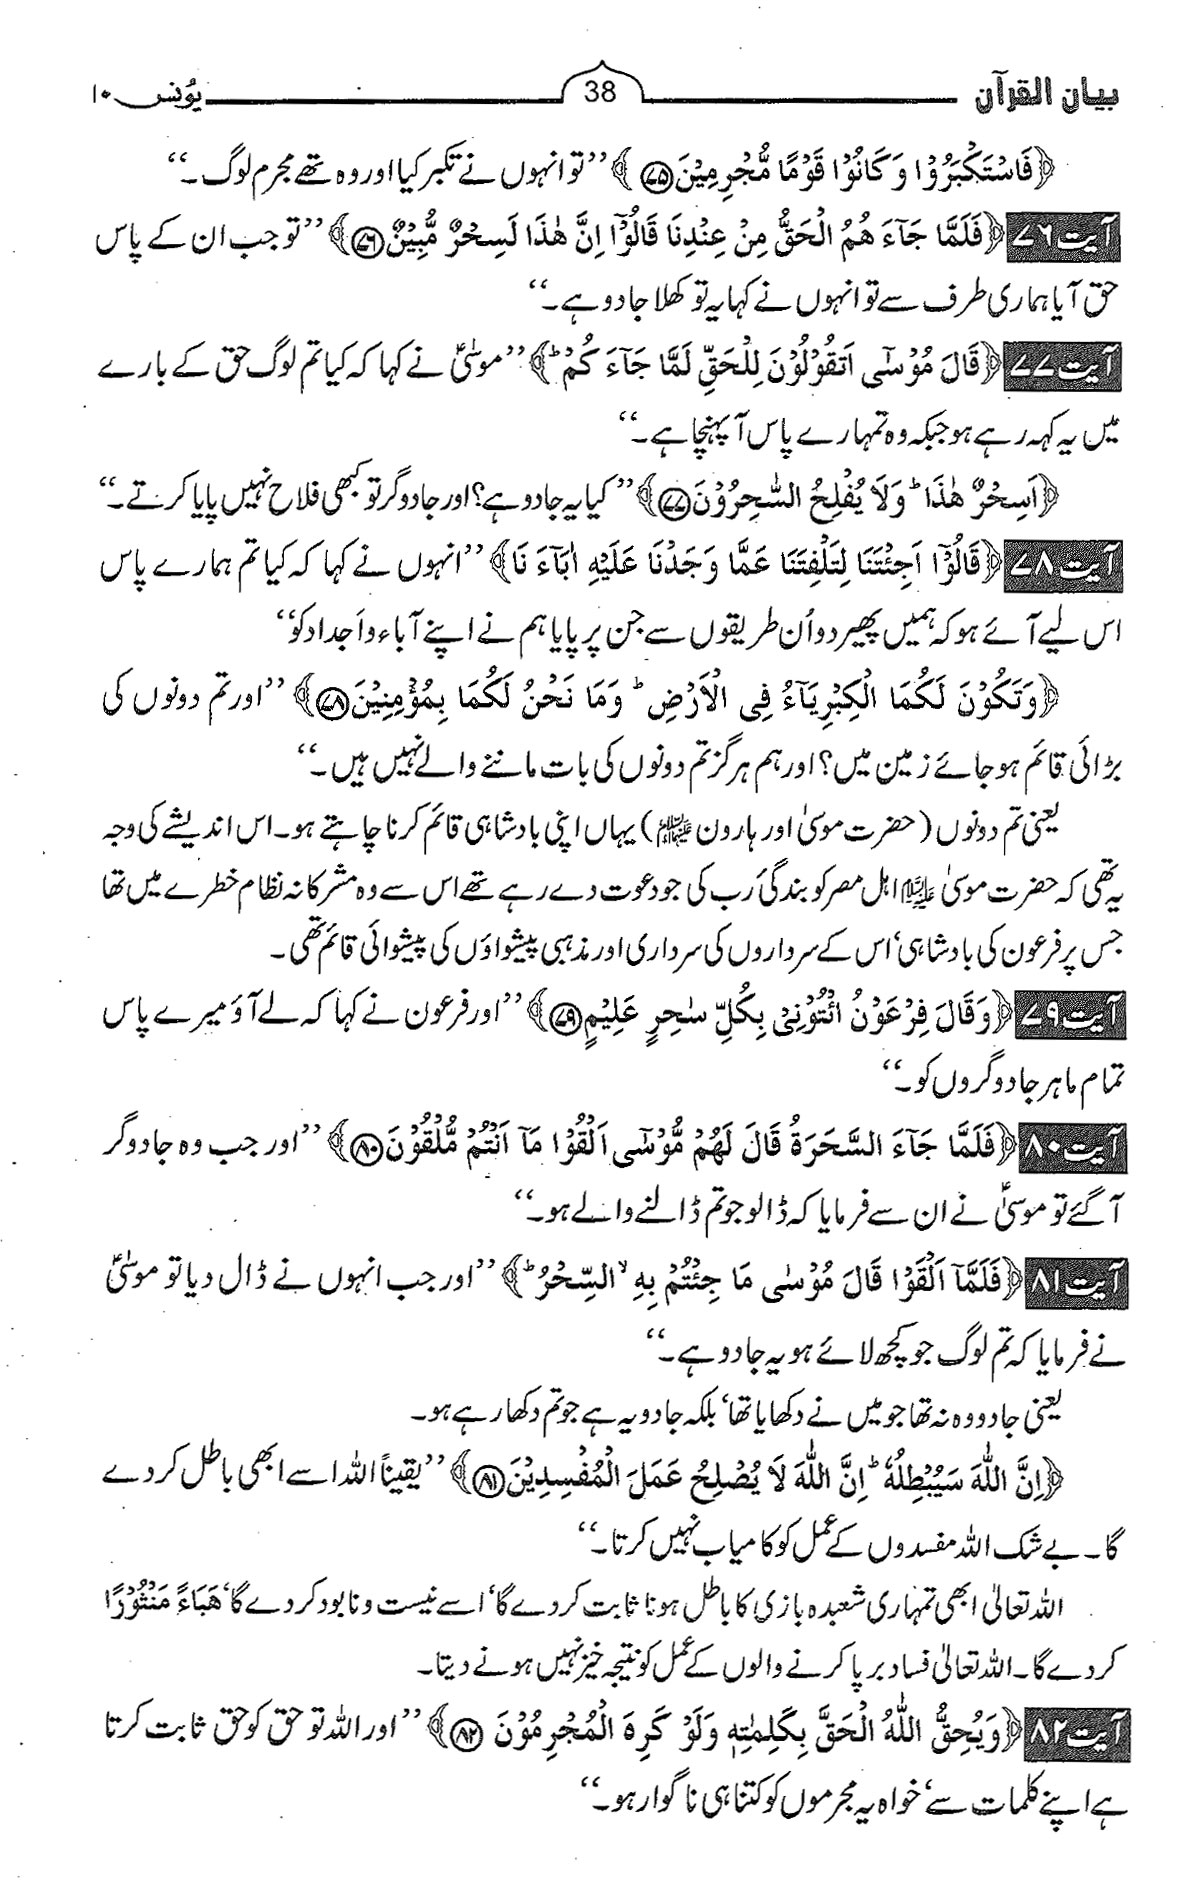 بیان القرآن 38 یُونس ۱۰
﴿فَاسْتَكْبَرُوْا وَكَانُوْا قَوْمًا مُّجْرِمِيْنَ۝۷۵﴾ ’’تو انہوں نے تکبر کیا اور وہ تھے مجرم لوگ۔‘‘
آیت ۷۶ ﴿فَلَمَّا جَآءَ هُمُ الْحَقُّ مِنْ عِنْدِنَا قَالُوْٓا اِنَّ هٰذَا لَسِحْرٌ مُّبِيْنٌ۝۷۶﴾ ’’تو جب ان کے پاس
حق آیا ہماری طرف سے تو انہوں نے کہا یہ تو کھلا جادو ہے۔‘‘
آیت ۷۷ ﴿قَالَ مُوْسٰٓى اَتَقُوْلُوْنَ لِلْحَقِّ لَمَّا جَآءَ كُمْ ؕ﴾ ’’موسیٰؑ نے کہا کہ کیا تم لوگ حق کے بارے
میں یہ کہہ رہے ہو جبکہ وہ تمہارے پاس آ پہنچا ہے۔‘‘
﴿اَسِحْرٌ هٰذَا ؕ وَلَا يُفْلِحُ السّٰحِرُوْنَ۝۷۷﴾ ’’کیا یہ جادو ہے؟ اور جادوگر تو کبھی فلاح نہیں پایا کرتے۔‘‘
آیت ۷۸ ﴿قَالُوْٓا اَجِئْتَنَا لِتَلْفِتَنَا عَمَّا وَجَدْنَا عَلَيْهِ اٰبَآءَ نَا﴾ ’’انہوں نے کہا کہ کیا تم ہمارے پاس
اس لیے آئے ہو کہ ہمیں پھیر دو اُن طریقوں سے جن پر پایا ہم نے اپنے آباء و اَجداد کو‘‘
﴿وَتَكُوْنَ لَكُمَا الْكِبْرِيَآءُ فِى الْاَرْضِ ؕ وَمَا نَحْنُ لَكُمَا بِمُؤْمِنِيْنَ۝۷۸﴾ ’’اور تم دونوں کی
بڑائی قائم ہو جائے زمین میں؟ اور ہم ہرگز تم دونوں کی بات ماننے والے نہیں ہیں۔‘‘
یعنی تم دونوں (حضرت موسیٰ اور ہارون علیہما السلام) یہاں اپنی بادشاہی قائم کرنا چاہتے ہو۔ اس اندیشے کی وجہ
یہ تھی کہ حضرت موسیٰ علیہ السلام اہل مصر کو بندگیٔ رَب کی جو دعوت دے رہے تھے اس سے وہ مشرکانہ نظام خطرے میں تھا
جس پر فرعون کی بادشاہی‘ اس کے سرداروں کی سرداری اور مذہبی پیشواؤں کی پیشوائی قائم تھی۔
آیت ۷۹ ﴿وَقَالَ فِرْعَوْنُ ائْتُوْنِىْ بِكُلِّ سٰحِرٍ عَلِيْمٍ۝۷۹﴾ ’’اور فرعون نے کہا کہ لے آؤ میرے پاس
تمام ماہر جادوگروں کو۔‘‘
آیت ۸۰ ﴿فَلَمَّا جَآءَ السَّحَرَةُ قَالَ لَهُمْ مُّوْسٰٓى اَلْقُوْا مَآ اَنْتُمْ مُّلْقُوْنَ۝۸۰﴾ ’’اور جب وہ جادوگر
آ گئے تو موسیٰؑ نے ان سے فرمایا کہ ڈالو جو تم ڈالنے والے ہو۔‘‘
آیت ۸۱ ﴿فَلَمَّآ اَلْقَوْا قَالَ مُوْسٰى مَا جِئْتُمْ بِهِ ۙ السِّحْرُ ؕ﴾ ’’اور جب انہوں نے ڈال دیا تو موسیٰؑ
نے فرمایا کہ تم لوگ جو کچھ لائے ہو یہ جادو ہے۔‘‘
یعنی جادو وہ نہ تھا جو میں نے دکھایا تھا‘ بلکہ جادو یہ ہے جو تم دکھا رہے ہو۔
﴿اِنَّ اللّٰهَ سَيُبْطِلُهٗ ؕ اِنَّ اللّٰهَ لَا يُصْلِحُ عَمَلَ الْمُفْسِدِيْنَ۝۸۱﴾ ’’یقیناً اللہ اسے ابھی باطل کر دے
گا۔ بے شک اللہ مفسدوں کے عمل کو کامیاب نہیں کرتا۔‘‘
اللہ تعالیٰ ابھی تمہاری شعبدہ بازی کا باطل ہونا ثابت کر دے گا‘ اسے نیست و نابود کر دے گا‘ هَبَاءً مَنْثُوْرًا
کر دے گا۔ اللہ تعالیٰ فساد برپا کرنے والوں کے عمل کو نتیجہ خیز نہیں ہونے دیتا۔
آیت ۸۲ ﴿وَيُحِقُّ اللّٰهُ الْحَقَّ بِكَلِمٰتِهٖ وَلَوْ كَرِهَ الْمُجْرِمُوْنَ۝۸۲﴾ ’’اور اللہ تو حق کو حق ثابت کرتا
ہے اپنے کلمات سے‘ خواہ یہ مجرموں کو کتنا ہی ناگوار ہو۔‘‘